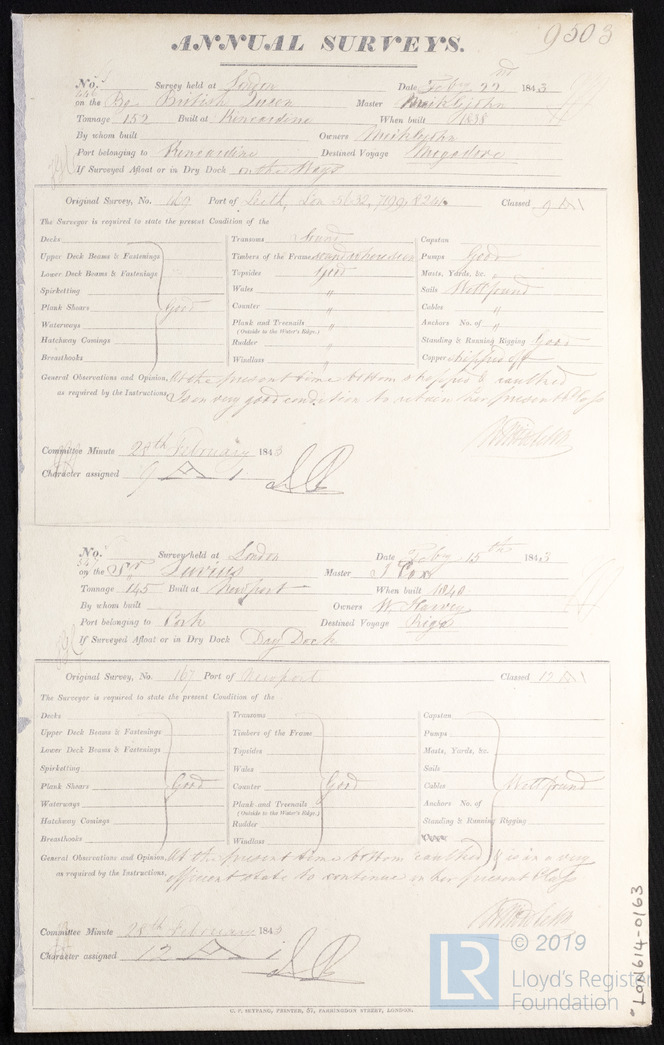 ANNUAL SURVEYS.
9503
No. Survey held at London Date Feby 22nd 1843
on the Bg British Queen Master Meiklejohn
Tonnage 152 Built at Kincardine When built 1838
By whom built Owners Meiklejohn
Port belonging to Kincardine Destined Voyage Mogadore
If Surveyed Afloat or in Dry Dock on the Ways
Original Survey, No. 169 Port of Leith, Lon Classed 9 A 1
The Surveyor is required to state the present Condition of the
Decks Transoms Sound Capstan
Upper Deck Beams & Fastenings Timbers of the Frame Pumps Good
Lower Deck Beams & Fastenings Topsides Good Masts, Yards, &c. "
Spirketting Wales " Sails Well found
Plank Shears Good Counter " Cables "
Waterways Plank and Treenails " Anchors No. of "
(Outside to the Water's Edge.)
Hatchway Comings Rudder " Standing & Running Rigging Good
Breasthooks Windlass " Copper stripped off
General Observations and Opinion, At the present time bottom stripped & caulked
as required by the Instructions, Is in very good condition to retain her present Class
Committee Minute 28th February 1843
Character assigned 9 A 1
No. Survey held at London Date Feby 15th 1843
on the Sr Master J Cox
Tonnage 145 Built at Newport When built 1840
By whom built Owners W Harvey
Port belonging to Cork Destined Voyage Riga
If Surveyed Afloat or in Dry Dock Day Dock
Original Survey, No. 167 Port of Newport Classed 12 A 1
The Surveyor is required to state the present Condition of the
Decks Transoms Capstan
Upper Deck Beams & Fastenings Timbers of the Frame Pumps
Lower Deck Beams & Fastenings Topsides Masts, Yards, &c.
Spirketting Wales Sails
Plank Shears Good Counter Good Cables Well found
Waterways Plank and Treenails Anchors No. of
(Outside to the Water's Edge.)
Hatchway Comings Rudder Standing & Running Rigging
Breasthooks Windlass
General Observations and Opinion, At the present time bottom caulked & is in a very
as required by the Instructions, efficient state to continue in her present Class
Committee Minute 28th February 1843
Character assigned 12 A 1
C. F. SEYFANG, PRINTER, 57, FARRINGDON STREET, LONDON.
LON614-0163
LR © 2019
Lloyd's Register
Foundation